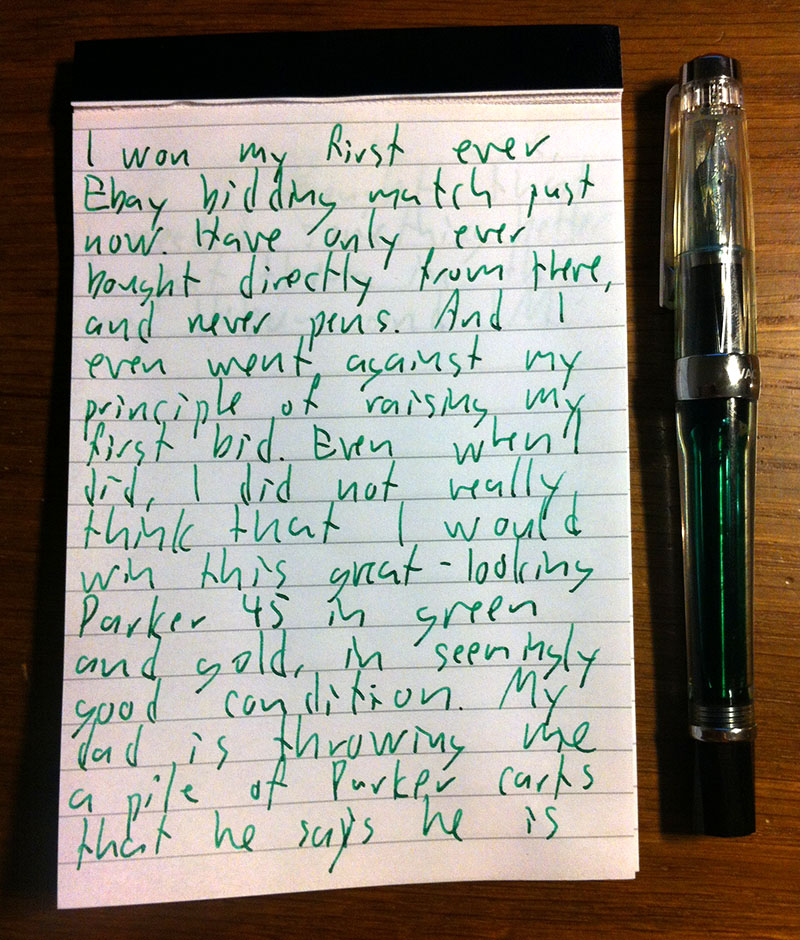 I won my first ever
Ebay bidding match just
now. Have only ever
bought directly from there,
and never pens. And I
even went against my
principle of raising my
first bid. Even when I
did, I did not really
think that I would
win this great-looking
Parker 45 in green
and gold, in seemingly
good condition. My
dad is throwing me
a pile of Parker carts
that he says he is